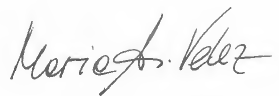 Maria A. Velez